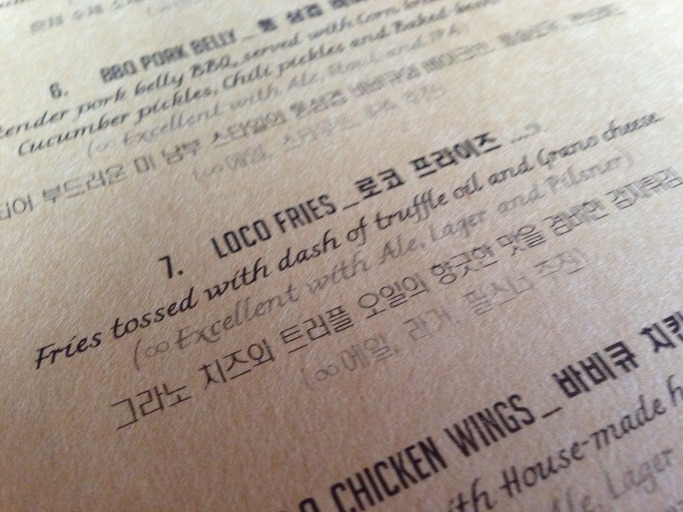 6. BBQ PORK BELLY _ 통 삼겹
Tender pork belly BBQ, served with Corn
Cucumber pickles, Chili pickles and Baked
(∞ Excellent with Ale, Stout and IPA)
부드러운 미 남부 스타일의 통삼겹 바비큐와
(∞에일,
7. LOCO FRIES _로코 프라이즈 ...5.
Fries tossed with dash of truffle oil and Grano cheese.
(∞ Excellent with Ale, Lager and Pilsner)
그라노 치즈와 트러플 오일의 향긋한 맛을 겸비한 감자튀김
(∞에일, 라거, 필스너 추천)
CHICKEN WINGS _바비큐 치킨
with House-made
Ale, Lager